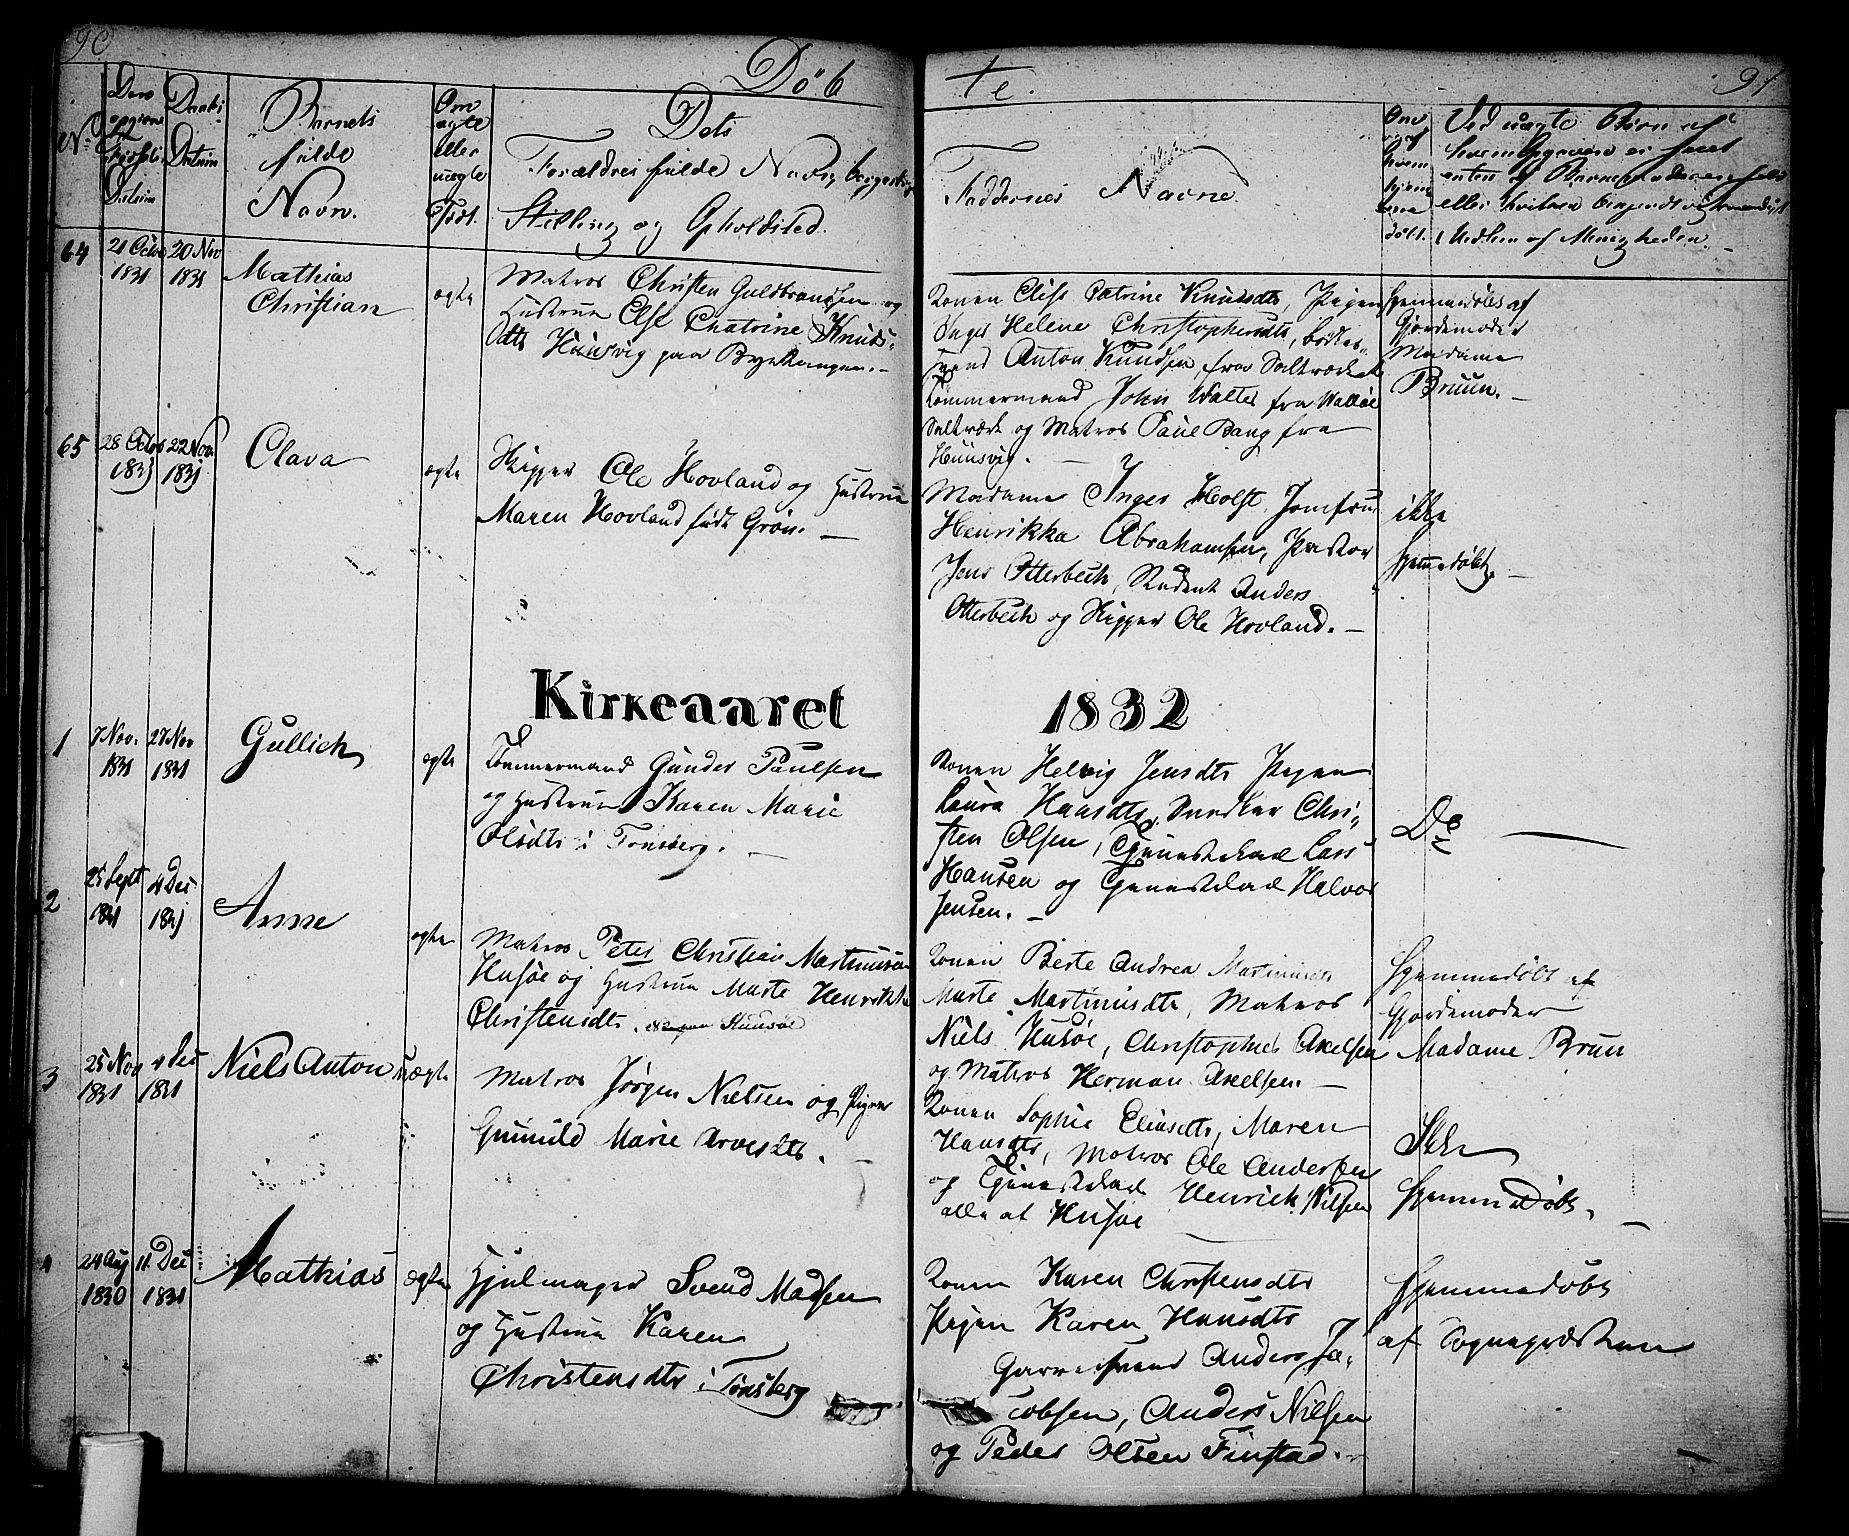 90
Døb
te.
91
No
Dens
opgivne
Fødsels
Datum
Daabs
Datum
Barnets
fulde
Navn.
Om
ægte
eller
uægte
Født.
Dets
Forældres fulde Navn, borgerlige
Stilling og Opholdsted.
Faddernes Navne
Om
og af
hvem
hjem̅e
døbt.
Ved uægte Børn af
1 Udlem af Menigheden.
64
21 Octbr
1831
20 Nov
1831
Mathias
Christian
ægte
Matros Christen Guldbrandsen og
Hustrue Else Chatrine Knuds-
dtr Huusvig paa Bykkangen.
Konen Elise Catrine Knudsdtr, Pigen
Inger Helene Christophersdtr, Bødker-
svend Anton Knudsen fra Saltværket
Tømmermand John Walter fra Walløe
Saltværk og Matros Paul Bang fra
Huusvig.
Hjemmedøbt af
Gjordemoder
Madame
Bruun.
65
28 Octbr
1831
22 Nov
1831
Olava
ægte
Skipper Ole Hovland og Hustrue
Maren Hovland født Grøn.
Madame Inger Holst, Jomfrue
Henrikka Abrahamsen, Pastor
Jens Otterbech, Student Anders
Otterbech og Skipper Ole Hovland.
ikke
hjemmedøbt.
Kirkeaaret
1832
1
7 Nov.
1831
27 Nov
1831
Gullich
ægte
Tømmermand Gunder Paulsen
og Hustrue Karen Marie
Olsdtr i Tønsberg.
Konen Helvig Jensdtr Pigen
Laura Hansdtr, Snedker Chri-
sten Olsen, Tjenestekarl Lars
Hansen og Tjenestekarl Halvor
Jensen.
Do
2
25 Sept
1831
4 Dec
1831
Anne
ægte
Matros Peter Christian Martinusen
Husøe og Hustrue Marte Henrikke
Christensdtr.
Konen Berte Andrea Martinusdtr
Marte Martinusdtr, Matros
Niels Husøe, Christopher Axelsen
og Matros Herman Axelsen.
Hjemmedøbt af
Gjordemoder
Madame Bruun
3
25 Nov
1831
4 Dec
1831
Niels Anton
uægte
Matros Jørgen Nielsen og Pigen
Gunnild Marie Arvesdtr.
Konen Sophie Eliasdtr, Maren
Hansdtr, Matros Ole Andersen
og Tjenestekarl Henrich Nilsen
alle af Husøe
Ikke
Hjemmedøbt.
4
24 Aug
1830
11 Dec
1831
Mathias
ægte
Hjulmager Svend Madsen
og Hustrue Karen
Christensdtr i Tønsberg
Konen Karen Christensdtr
Pigen Karen Hansdtr
Garversvend Anders Ja-
cobsen, Anders Nilsen
og Peder Olsen Finstad.
Hjemmedøbt
af Sognepræsten